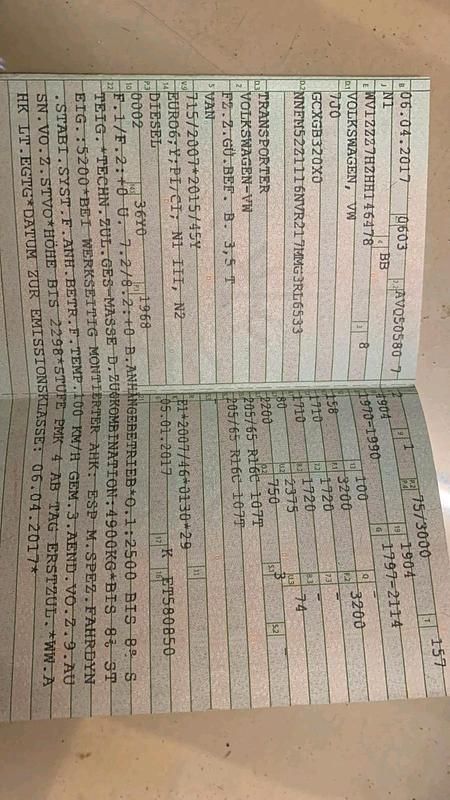 06.04.2017 0603 AVQ50580 7
N1 BB
WV1ZZZ7HZHH146478 8
VOLKSWAGEN, VW
7J0
GCXGB320X0
TRANSPORTER
VOLKSWAGEN-VW
FZ.Z.GÜ.BEF. B. 3,5 T
VAN
715/2007*2015/45Y
EURO6;Y;PI/CI, N1 III, N2
DIESEL
0002 36Y0 1968
1 75/3000 157
1904 1904
1970-1990 1797-2114
158 100 -
1710 3200 3200
1710 1720 -
1720 -
80 2375 74
2200 750 3 -
205/65 R16C 107T
205/65 R16C 107T
E1*2007/46*0130*29
05.01.2017 K FT580850
F.1/F.2:+0 U. 7.2/8.2:+0 B.ANHÄNGEBETRIEB*O.1:2500 BIS 8% S
TEIG.*TECHN.ZUL.GES-MASSE D.ZUGKOMBINATION:4900KG*BIS 8% ST
EIG.:5200*BEI WERKSEITIG MONTIERTER AHK: ESP M.SPEZ.FAHRDYN
.STABI.SYST.F.ANH.BETR.F.TEMP.100 KM/H GEM.3.AEND.VO.Z.9.AU
SN.VO.Z.STVO*HÖHE BIS 2298*STUFE PMK 4 AB TAG ERSTZUL.*WW.A
HK LT.EGTG*DATUM ZUR EMISSIONSKLASSE: 06.04.2017*